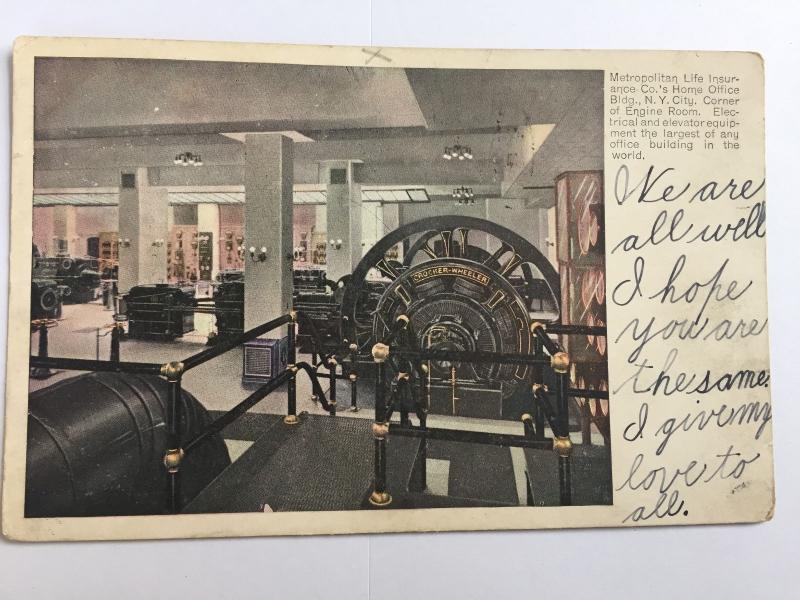 CROCKER-WHEELER
Metropolitan Life Insur-
ance Co.'s Home Office
Bldg., N. Y. City. Corner
of Engine Room. Elec-
trical and elevator equip-
ment the largest of any
office building in the
world.
We are
all well
I hope
you are
the same.
I give my
love to
all.